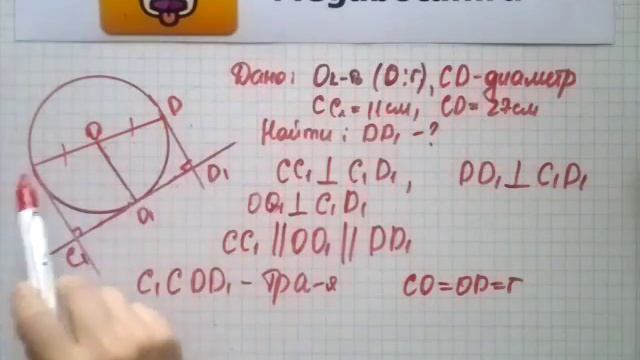 Дано: Ок-ть (O;r), CD-диаметр
CC₁=11см, CD=27см
Найти: DD₁-?
CC₁⊥C₁D₁, DD₁⊥C₁D₁
OO₁⊥C₁D₁
CC₁||OO₁||DD₁
C₁CDD₁-тра-я CO=OD=r
O
D
D₁
O₁
C₁